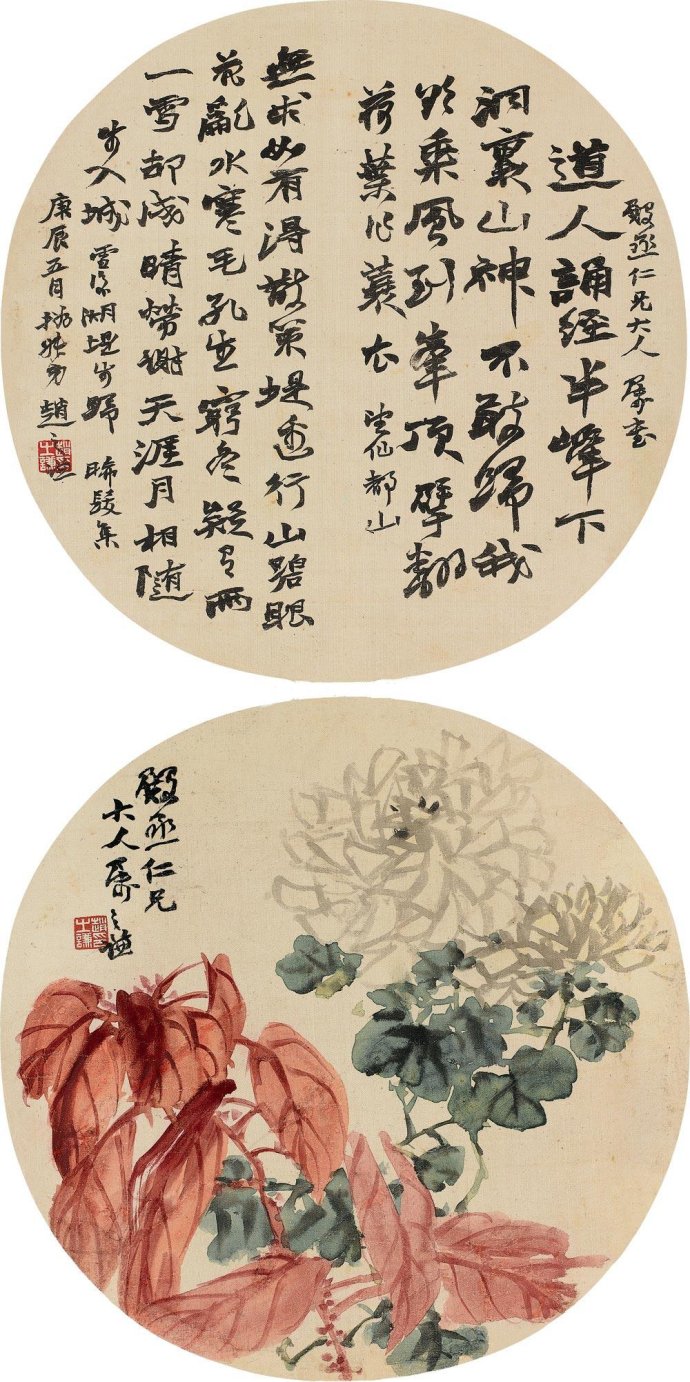 殿丞仁兄大人屬書
道人誦經半峯下
洞裏山神不敢歸我
欲乘風到峯頂擘翻
荷葉作蓑衣 望仙都山
無求如有得散策堤邊行山碧眼
花亂水寒毛孔生窮冬疑有雨
一雪却成晴勞謝天涯月相隨
步入城 雪後湖堤步歸 晞髮集
庚辰五月撝叔弟趙之謙
殿丞仁兄
大人屬之謙